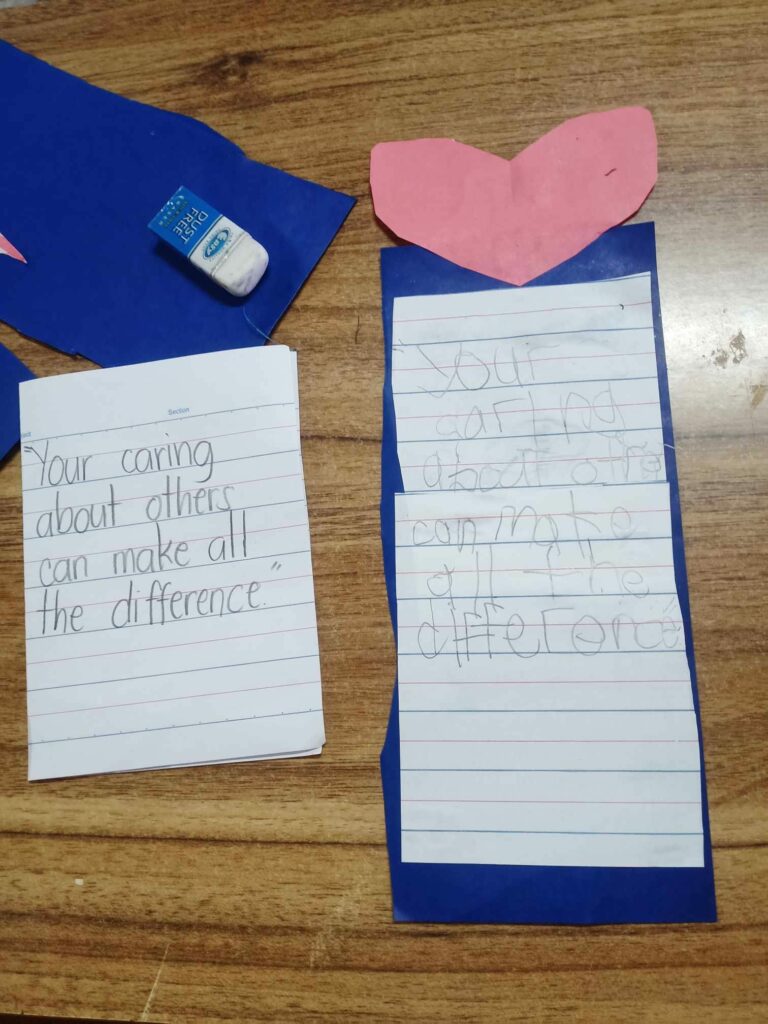 DUST
FREE
Section
"Your caring
about others
can make all
the difference."
"your
caring
about othe
can make
all the
difference